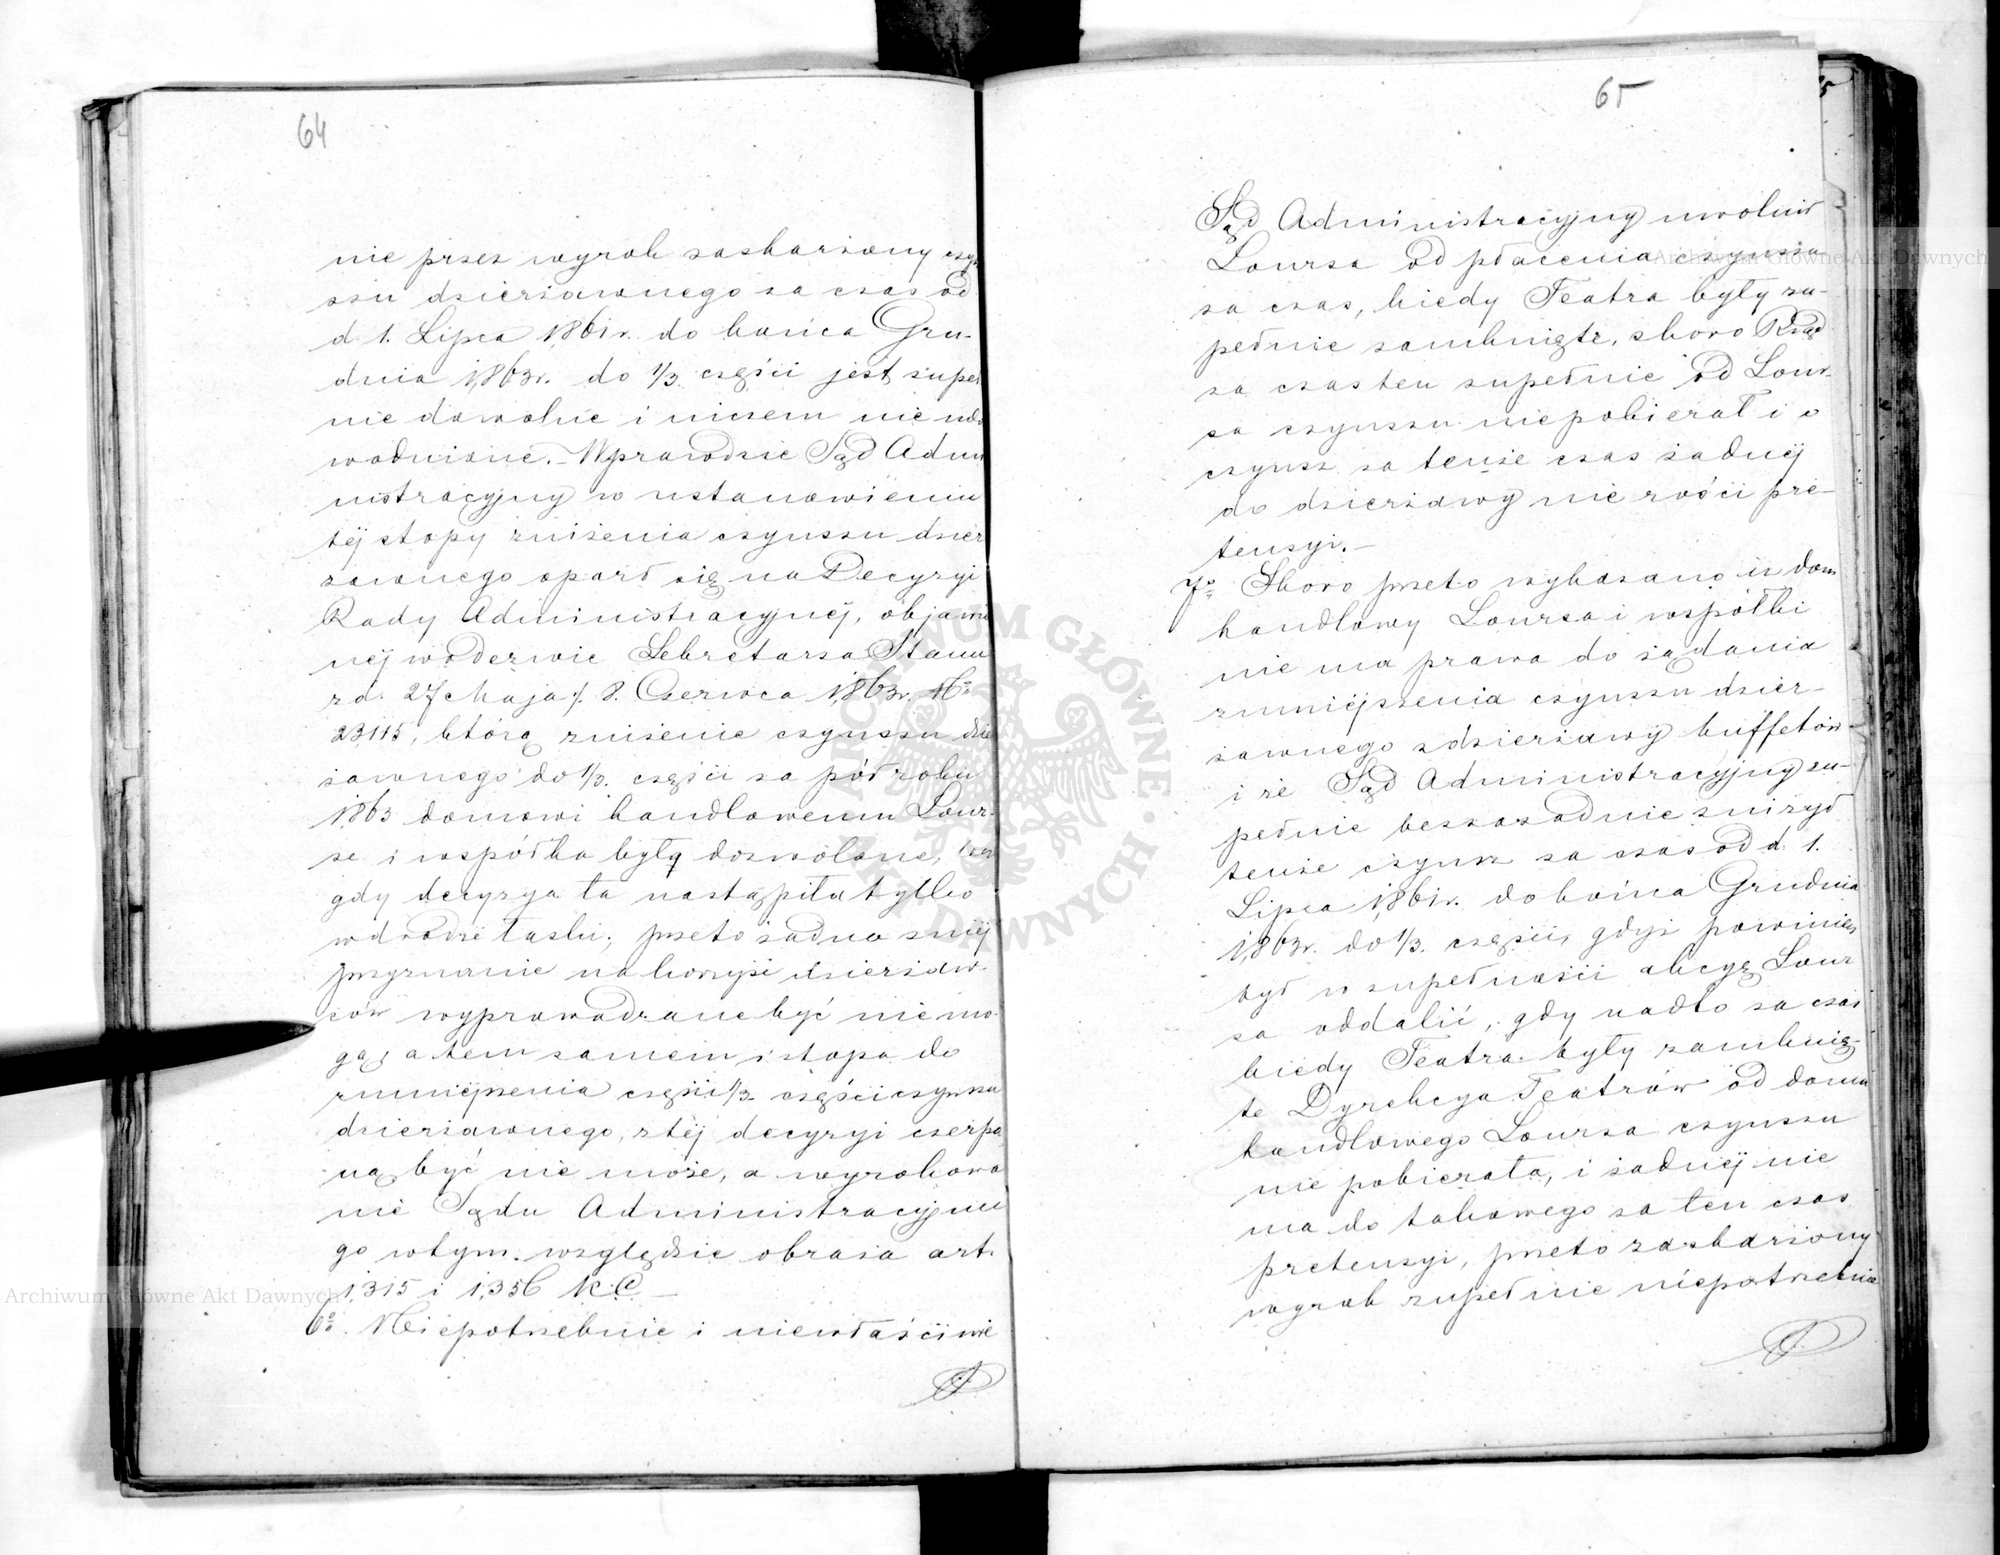 64
nie przez wyrok zaskarżony czyn
szu dzierżawnego za czas od
d. 1. Lipca 1861r. do końca Gru-
dnia 1863r. do 1/3. części jest zupeł
nie dowolne i niczem nie udo
wodnione. – Wprawdzie Sąd Admi
nistracyjny w ustanowieniu
téj stopy zniżenia czynszu dzier
żawnego oparł się na Decyzyi
Rady Administracyjnéj, objawio
néj w odezwie Sekretarza Stanu
zd. 27 Maja/. 8. Czerwca 1863r. No
23115, którą zniżenie czynszu dzie
żawnego do 1/3. części za pół roku
1863 domowi handlowemu Lour-
se i wspólka były dozwolone, lecz
gdy decyzya ta nastąpiła tylko
w drodze łaski, przeto żadna z niéj
przyznanie na korzyść dzierżaw-
ców wyprowadzane być nie mo-
gą, a tem samem i stopa do
zmniéjszenia części 1/3. części czynszu
dzierżawnego, z téj decyzyi czerpa
ną być nie może, a wyrokowa
nie Sądu Administracyjne
go w tym względzie obraża art.
1315 i 1356 K.C. –
6o. Niepotrzebnie i niewłaściwie
65
Sąd Administracyjny uwolnił
Loursa od płacenia czynszu
za czas, kiedy Teatra były zu-
pełnie zamknięte, skoro Rząd
za czas ten zupełnie od Lour-
sa czynszu niepobierał i o
czynsz za tenże czas żadnéj
do dzierżawy nie rości pre-
tensyi. –
7o. Skoro przeto wykazano iż dom
handlowy Loursa i wspólki
nie ma prawa do żądania
zmniéjszenia czynszu dzier-
żawnego z dzierżawy buffetów
i że Sąd Administracyjny zu-
pełnie bezzasadnie zniżył
tenże czynsz za czas od d. 1.
Lipca 1861r. do końca Grudnia
1863r. do 1/3. części, gdyż powinien
był w zupełności akcyę Lour
sa oddalić, gdy nadto za czas
kiedy Teatra były zamknię-
te Dyrekcya Teatrów od domu
handlowego Loursa czynszu
nie pobierała, i żadnéj nie
ma do takowego za ten czas
pretensyi, przeto zaskarżony
wyrok zupełnie niepotrzebnie
Archiwum Główne Akt Dawnych
Archiwum Główne Akt Dawnych
ARCHIWUM GŁÓWNE AKT DAWNYCH